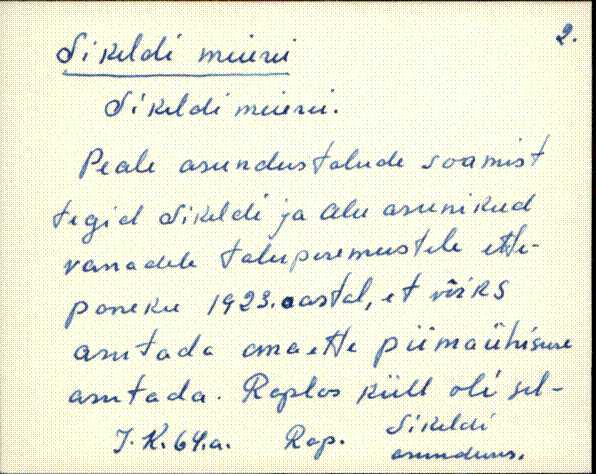 2.
Sikeldi meierei
Sikeldi meierei.
Peale asundustalude soamist
tegid Sikeldi ja Alu asunikud
vanadele taluperemeestele ette-
paneku 1923. aastal, et võiks
asutada omaette piimaühisuse
asutada. Raplas küll oli sel-
J. K. 64.a. Rap. Sikeldi
asundus.